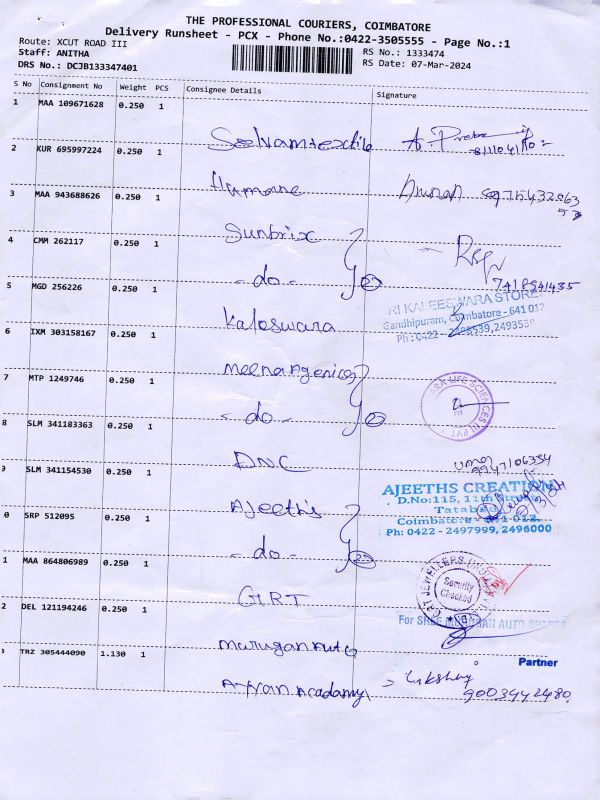 THE PROFESSIONAL COURIERS, COIMBATORE
Delivery Runsheet - PCX - Phone No.:0422-3505555 - Page No.:1
Route: XCUT ROAD III
Staff: ANITHA
DRS No.: DCJB133347401
RS No.: 1333474
RS Date: 07-Mar-2024
S No Consignment No Weight PCS Consignee Details Signature
1 MAA 109671628 0.250 1
Selvam textile
2 KUR 695997224 0.250 1
Humane
3 MAA 943688626 0.250 1
Sunbrix
4 CMM 262117 0.250 1
- do - 2
5 MGD 256226 0.250 1
RI KALEESWARA STORES
Gandhipuram, Coimbatore - 641 012
Ph : 0422 - 2498539, 2493539
Kaleswara
6 IXM 303158167 0.250 1
Meena Agencies
7 MTP 1249746 0.250 1
- do - 2
8 SLM 341183363 0.250 1
DNC
9 SLM 341154530 0.250 1
AJEETHS CREATION
D.No:115, 11th Street,
Tatabad,
Coimbatore - 641 012.
Ph: 0422 - 2497999, 2496000
Ajeeths
0 SRP 512095 0.250 1
- do - 2
1 MAA 864806989 0.250 1
Security
Checked
GRT
2 DEL 121194246 0.250 1
For SREE MURUGAN AUTO SPARES
Murugan Auto
3 TRZ 305444090 1.130 1
Partner
Academy
9003442480